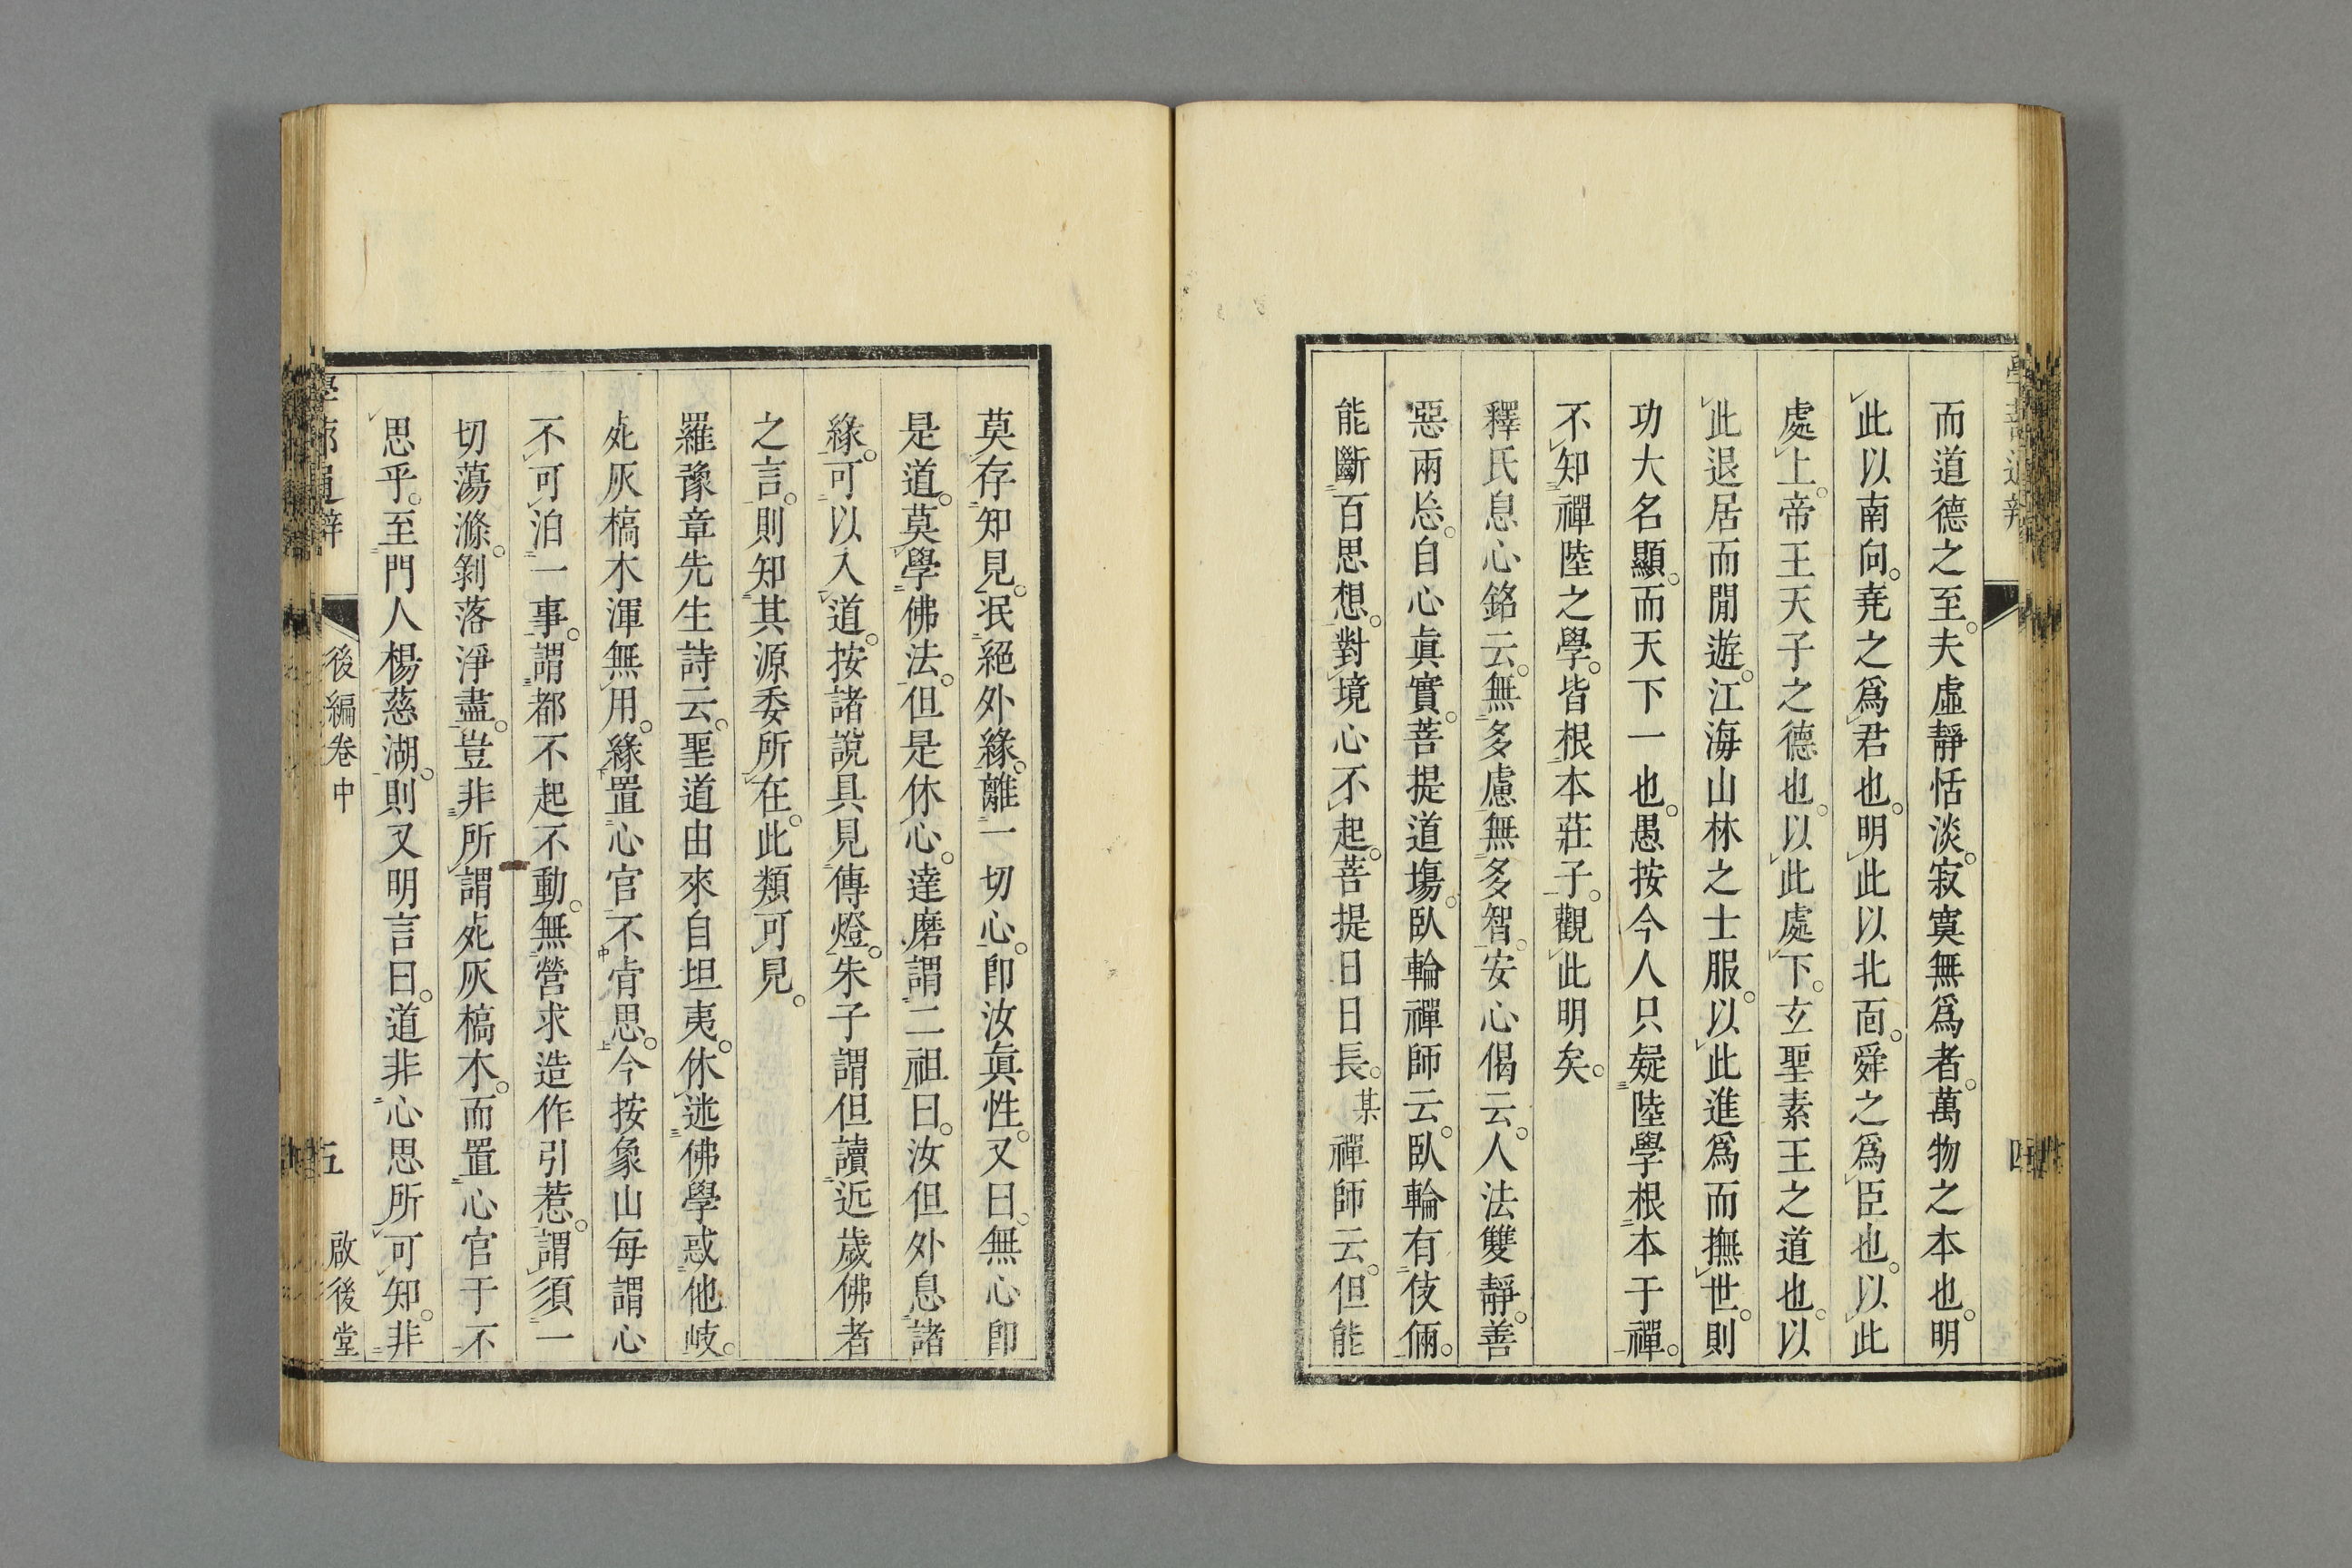 學蔀通辨
四
而道德之至。夫虛靜恬淡。寂寞無爲者。萬物之本也。明
此以南向。堯之爲君也。明此以北面。舜之爲臣也。以此
處上。帝王天子之德也。以此處下。玄聖素王之道也。以
此退居而閒遊。江海山林之士服。以此進爲而撫世。則
功大名顯。而天下一也。愚按今人只疑陸學根本于禪。
不知禪陸之學。皆根本莊子。觀此明矣。
釋氏息心銘云。無多慮無多智。安心偈云。人法雙靜。善
惡兩忘。自心眞實。菩提道場。臥輪禪師云。臥輪有伎倆。
能斷百思想。對境心不起。菩提日日長。某禪師云。但能
莫存知見。泯絕外緣。離一切心。卽汝眞性。又曰。無心卽
是道。莫學佛法。但是休心。達磨謂二祖曰。汝但外息諸
緣。可以入道。按諸說具見傳燈。朱子謂但讀近歲佛者
之言。則知其源委所在。此類可見。
羅豫章先生詩云。聖道由來自坦夷。休迷佛學惑他岐。
死灰槁木渾無用。緣置心官不肯思。今按象山每謂心
不可泊一事。謂都不起不動。無營求造作引惹。謂須一
切蕩滌。剝落淨盡。豈非所謂死灰槁木。而置心官于不
思乎。至門人楊慈湖。則又明言曰。道非心思所可知。非
學蔀通辨
後編卷中
五
啟後堂